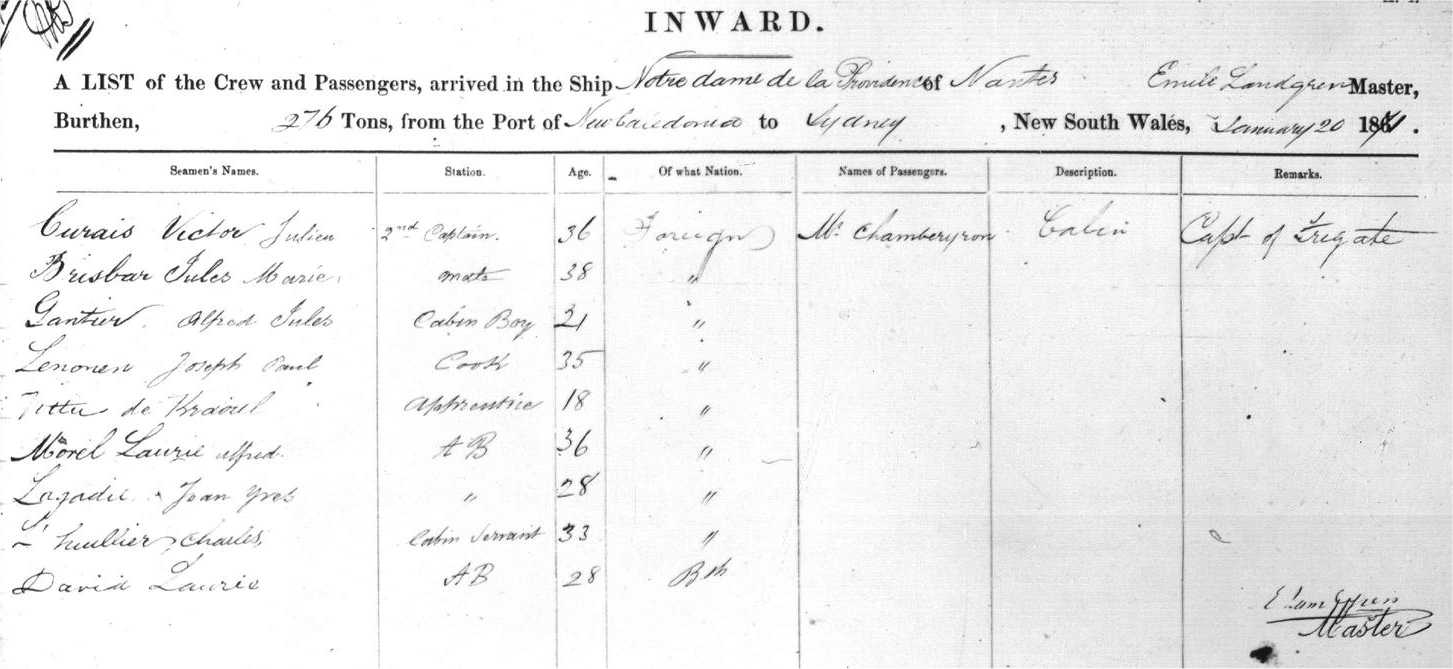 INWARD.
A LIST of the Crew and Passengers, arrived in the Ship Notre dame de la Providence of Nantes Emile Landgren Master,
Burthen, 276 Tons, from the Port of New Caledonia to Sydney, New South Wales, January 20 1861.
Seamen's Names. Station. Age. Of what Nation. Names of Passengers. Description. Remarks.
Curais Victor Julien 2nd Captain. 36 Foreign Mr Chamberyron Cabin Capt of Fregate
Brisbar Jules Marie. mate 38 "
Gantier. Alfred Jules Cabin Boy 21 "
Lenonen Joseph Paul Cook 35 "
de Apprentice 18 "
Morel Laurie alfred. AB 36 "
Lagadic Jean Yves " 28 "
L'huillier Charles, Cabin Servant 33 "
David Laurie AB 28 Bth
Master